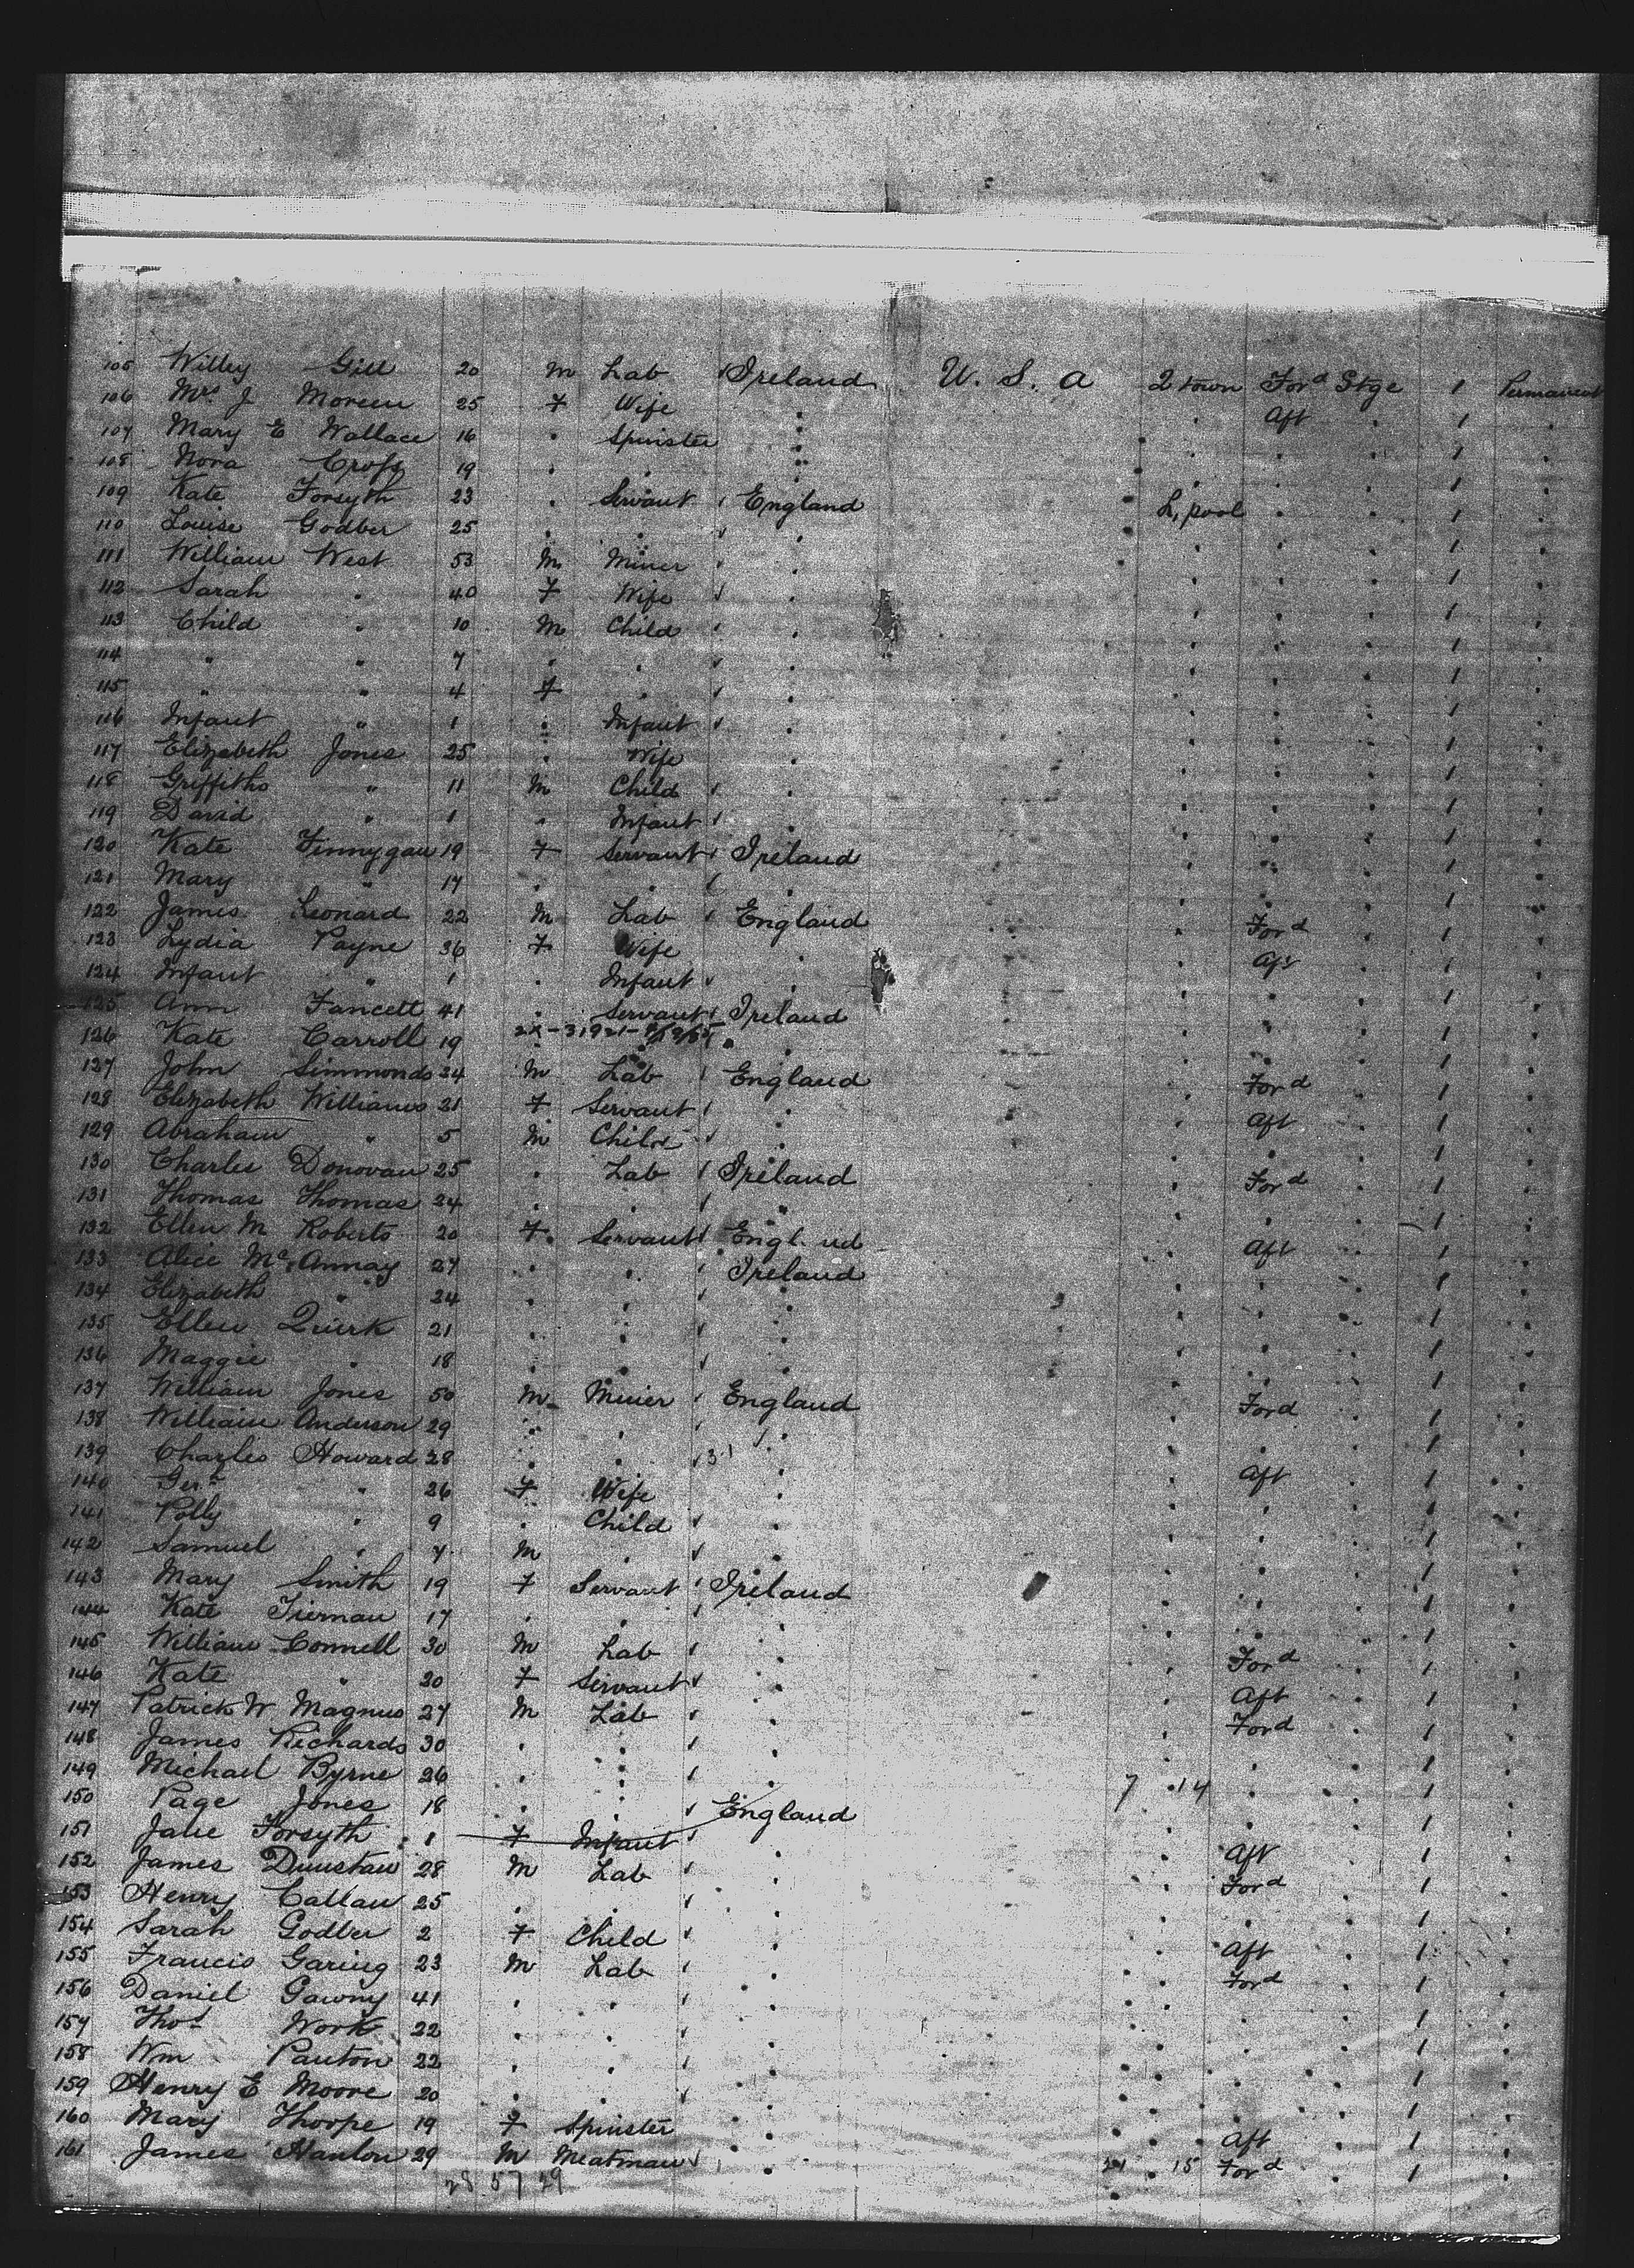 105 Willey Gill 20 M Lab Ireland U. S. A Q town Ford Stge 1 Permanent
106 Mrs J 25 F Wife Aft 1
107 Mary E Wallace 16 Spinster 1
108 Nora 19 1
109 Kate Forsyth 23 Servant England L,pool 1
110 Louise Godber 25 1
111 William West 53 M Miner 1
112 Sarah 40 F Wife 1
113 Child 10 M Child 1
114 " " 7 1
115 " " 4 F 1
116 Infant " 1 Infant 1
117 Elizabeth Jones 25 Wife 1
118 Griffiths " 11 M Child 1
119 David " 1 Infant 1
120 Kate Finnygan 19 F Servant Ireland 1
121 Mary " 17 1
122 James Leonard 22 M Lab England Ford 1
123 Lydia Payne 36 F Wife Aft 1
124 Infant " 1 Infant 1
125 Ann Fancett 41 Servant Ireland 1
126 Kate Carroll 19 1
127 John Simmonds 24 M Lab England Ford 1
128 Elizabeth Williams 21 F Servant Aft 1
129 Abraham " 5 M Child 1
130 Charles Donovan 25 Lab Ireland Ford 1
131 Thomas Thomas 24 1
132 Ellen M Roberts 20 F Servant Aft 1
133 Alice McAnnay 27 Ireland 1
134 Elizabeth " 24 1
135 Ellen Quirk 21 1
136 Maggie " 18 1
137 William Jones 50 M Miner England Ford 1
138 William Anderson 29 1
139 Charles Howard 28 Aft 1
140 " 26 F Wife 1
141 Polly " 9 Child 1
142 Samuel " 7 M 1
143 Mary Smith 19 F Servant Ireland 1
144 Kate Tiernan 17 1
145 William Connell 30 M Lab Ford 1
146 Kate " 20 F Servant Aft 1
147 Patrick W Magnus 27 M Lab Ford 1
148 James Richards 30 1
149 Michael Byrne 26 7 14 1
150 Page Jones 18 England 1
151 Jane Forsyth 1 F Infant Aft 1
152 James Dunstan 28 M Lab Ford 1
153 Henry Callan 25 1
154 Sarah Godber 2 F Child Aft 1
155 Francis Garing 23 M Lab Ford 1
156 Daniel 41 1
157 Thos Work 22 1
158 Wm Panton 22 1
159 Henry E Moore 20 1
160 Mary Thorpe 19 F Spinster Aft 1
161 James Hanlon 29 M Meatman 21 15 Ford 1
28 57 29